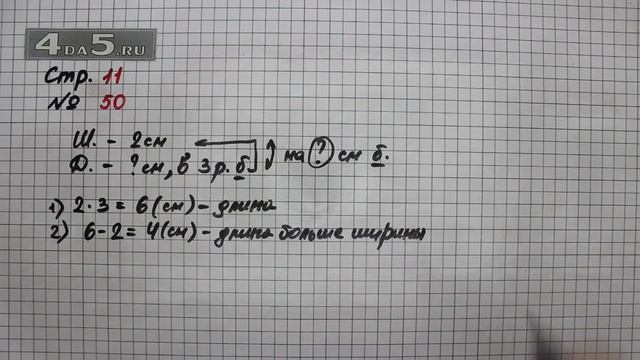 4DA5.RU
Стр. 11
№ 50
Ш. - 2см
Д. - ? см, в 3 р. б. на ? см б.
1) 2 · 3 = 6 (см) - длина
2) 6 - 2 = 4 (см) - длина больше ширины